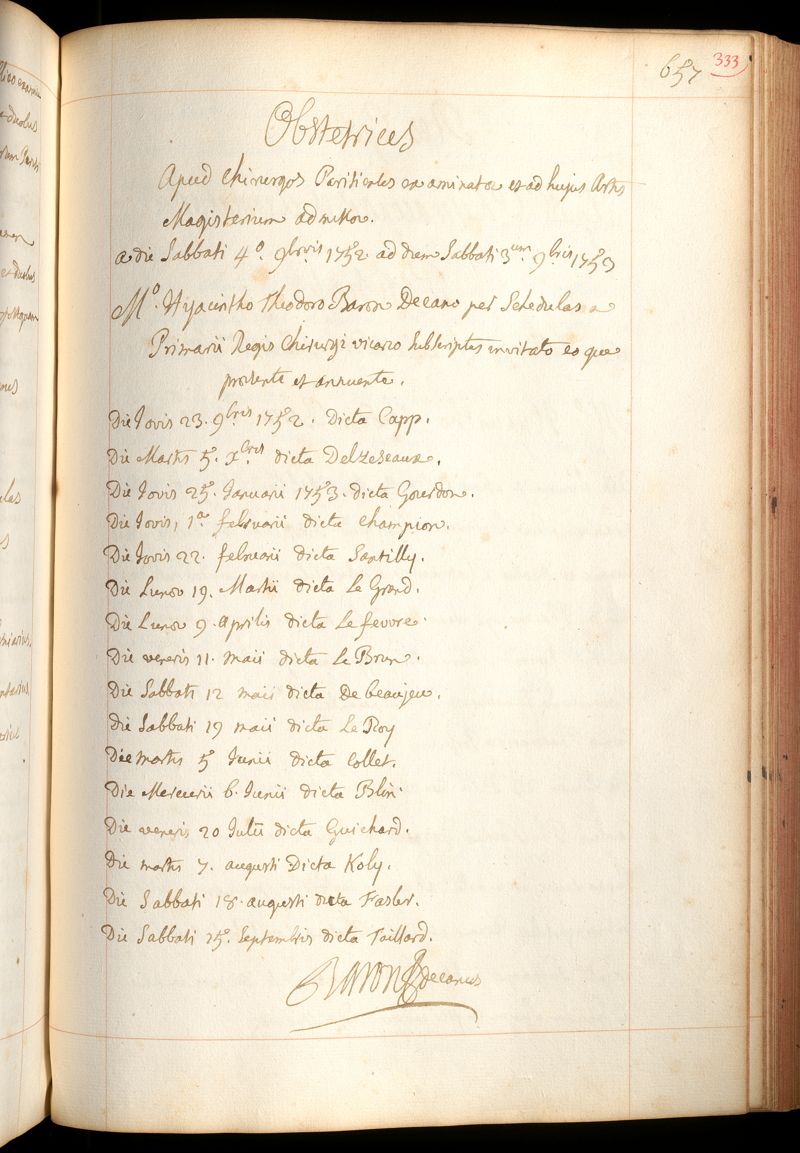 657 333
Obstetrices
Apud Chirurgos Parisienses examinatæ et ad hujus Artis
Magisterium admissæ.
a die Sabbati 4º. 9bris 1752 ad diem Sabbati 3am 9bris 1753
Mº. Hyacintho Theodoro Baron Decano per Schedulas a
Primarii Regis Chirurgi vicario subscriptas invitato eo que
præsente et annuente.
Die Jovis 23. 9bris 1752. dicta Capp.
Die Martis 5. Xbris dicta Delzeseaux.
Die Jovis 25. Januarii 1753. dicta Gourdon.
Die Jovis, 1a februarii dicta Champion.
Die Jovis 22. februarii dicta Santilly.
Die Lunæ 19. Martii dicta Le Grand.
Die Lunæ 9. aprilis dicta Le fevvre.
Die veneris 11. maii dicta Le Brun.
Die Sabbati 12 maii dicta De beaujeu.
Die Sabbati 19 maii dicta Le Roy
Die martis 5 Junii dicta Collet.
Die Mercurii 6. Junii dicta Blin.
Die veneris 20 Julii dicta Guichard.
Die martis 7. augusti Dicta Koly.
Die Sabbati 18. augusti dicta Fasler.
Die Sabbati 25. Septembris dicta Taillard.
Baron decanus